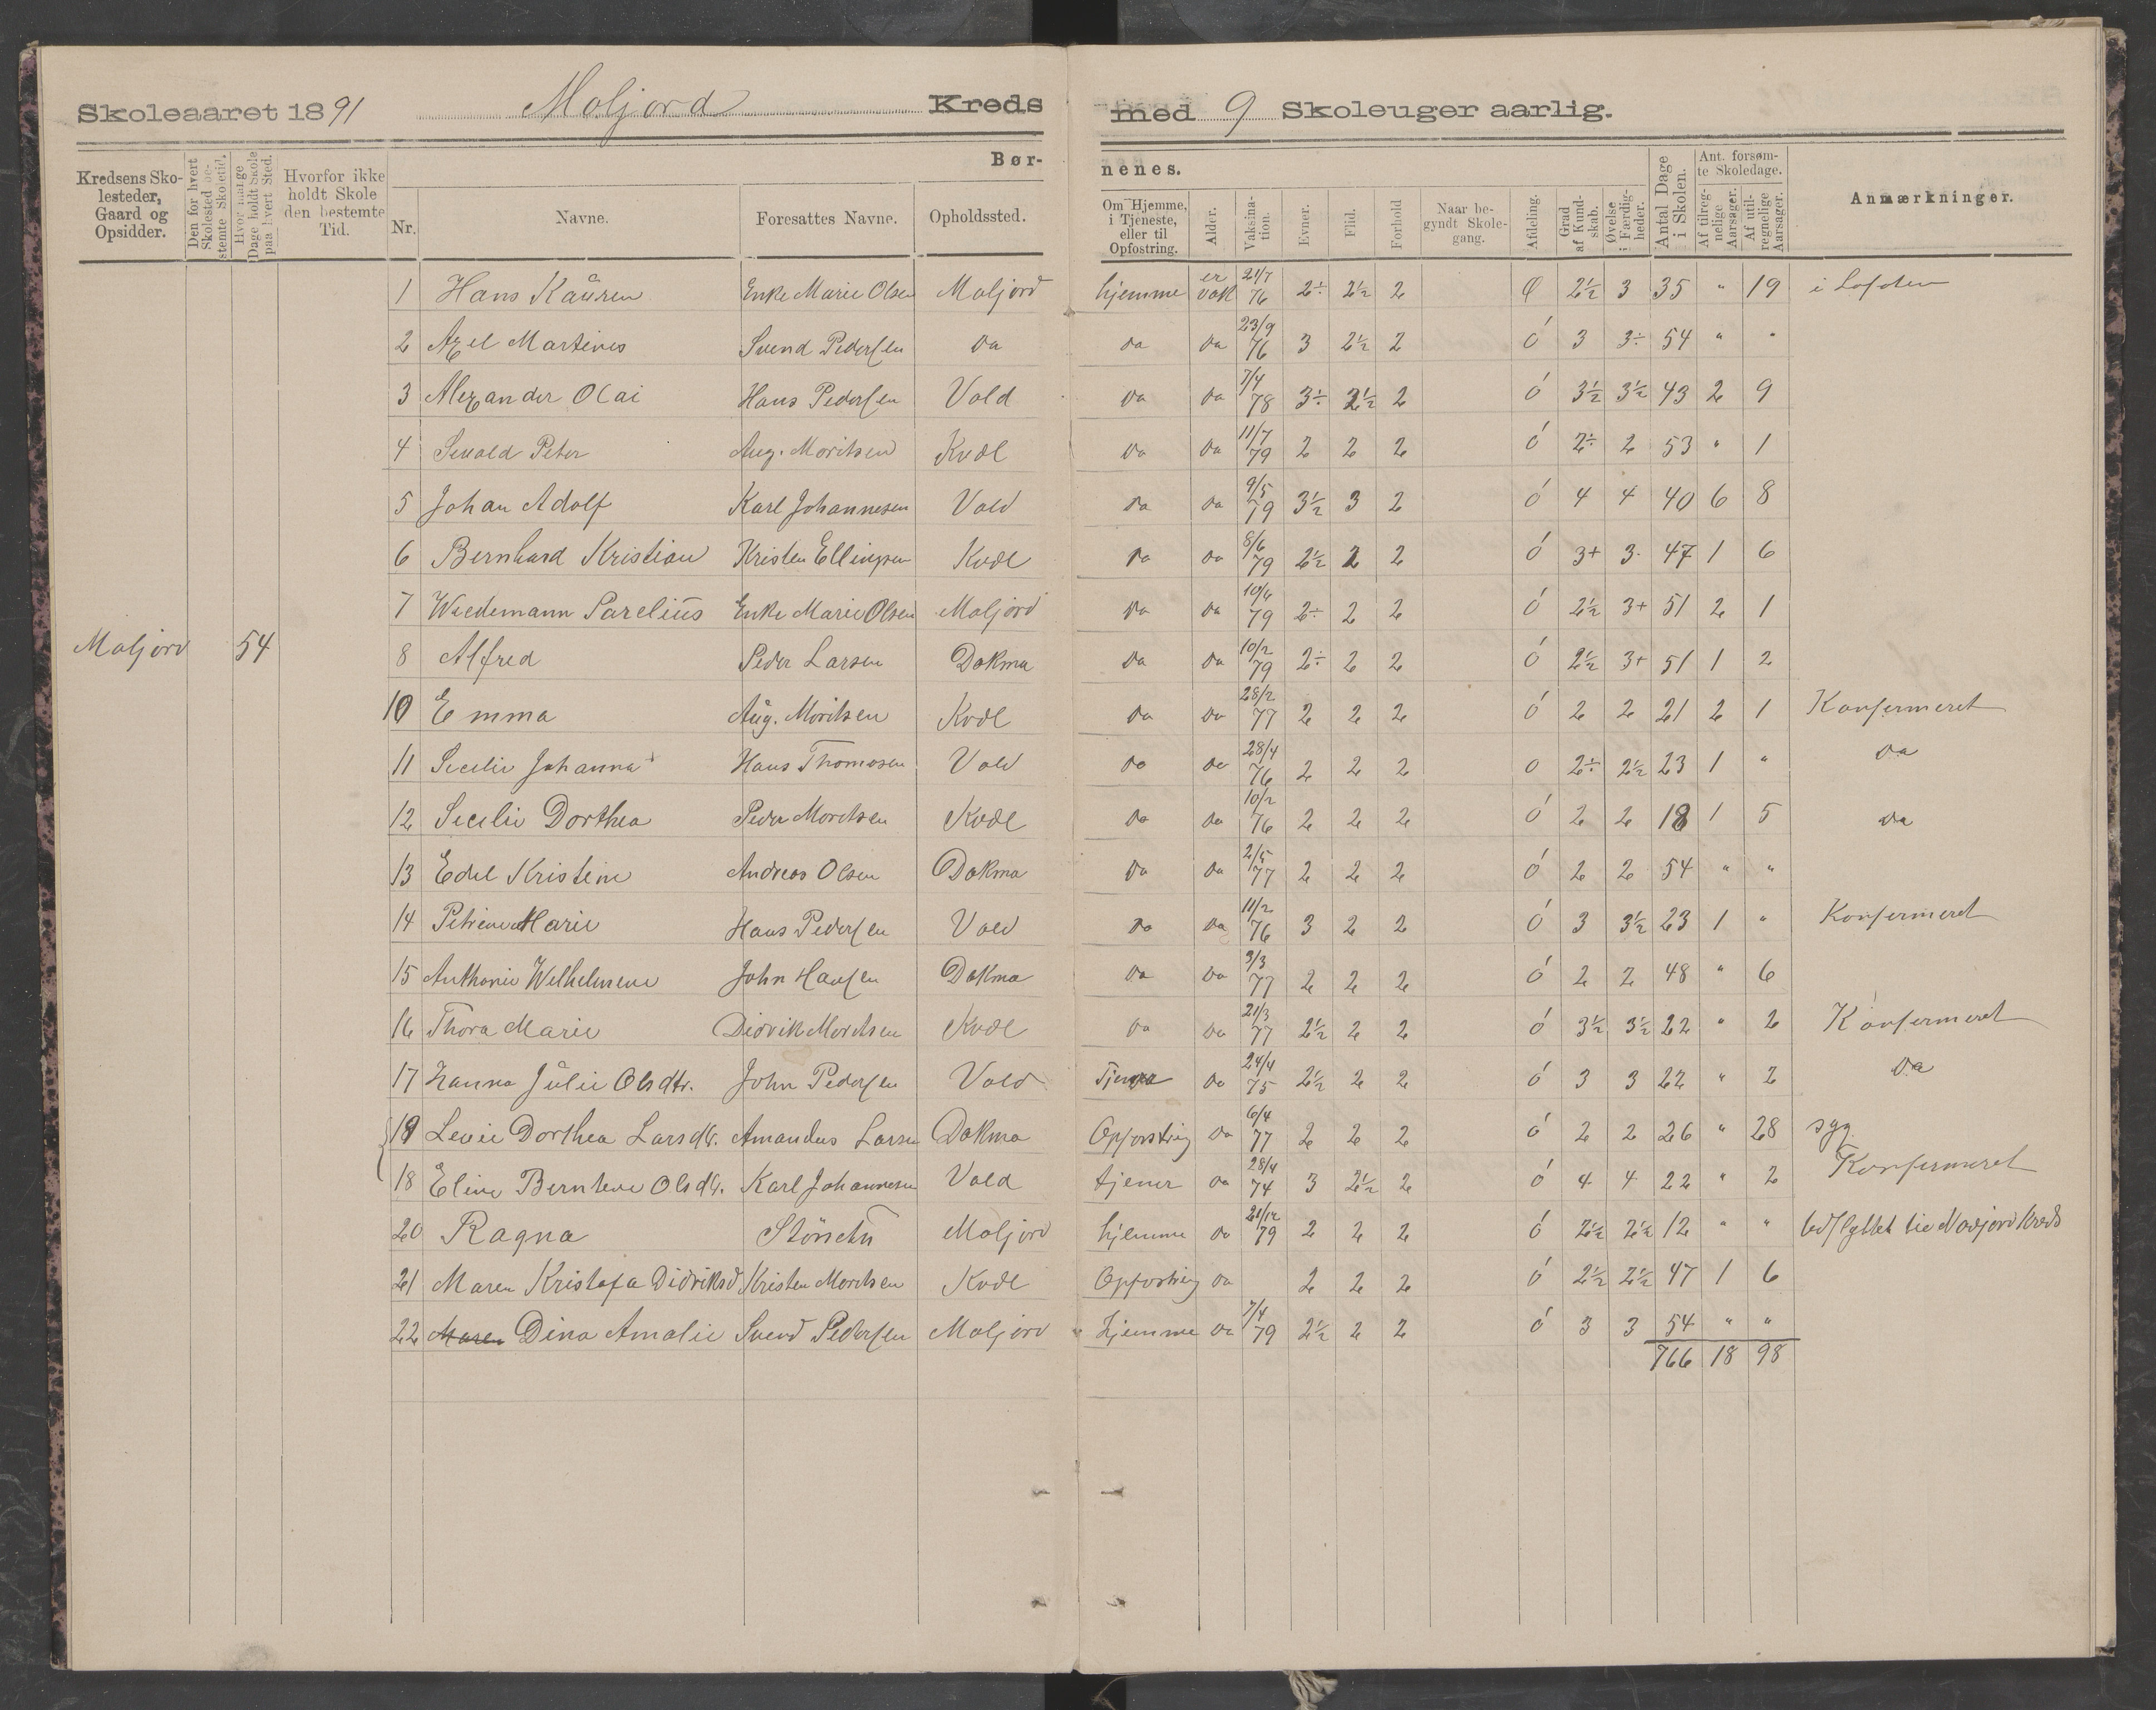 Skoleaaret 1891 Moljord Kreds med 9 Skoleuger aarlig.
Kredsens Sko-lesteder, Gaard og Opsidder. Den for hvert Skolested be-stemte Skoletid. Hvor mange Dage holdt Skole paa hvert Sted. Hvorfor ikke holdt Skole den bestemte Tid. Bør-nenes.
Nr. Navne. Foresattes Navne. Opholdssted. Om Hjemme, i Tjeneste, eller til Opfostring. Alder. Vaksina-tion. Evner. Flid. Forhold Naar be-gyndt Skole-gang. Afdeling. Grad af Kund-skab. Øvelse i Færdig-heder. Antal Dage i Skolen. Ant. forsøm-te Skoledage. Af tilreg-nelige Aarsager. Af util-regnelige Aarsager. Anmærkninger.
1 Hans Kåuren Enke Marie Olsen Moljord hjemme er vak 21/7 76 2÷ 2½ 2 Ø 2½ 3 35 " 19 i Lofoten
2 Axel Martines Svend Pedersen da da da 23/9 76 3 2½ 2 ó 3 3÷ 54 " "
3 Alexander Olai Hans Pedersen Vold da da 7/4 78 3÷ 2½ 2 ó 3½ 3½ 43 2 9
4 Sevald Peter Aug. Moritsen Kvål da da 11/7 79 2 2 2 ó 2÷ 2 53 " 1
5 Johan Adolf Karl Johannesen Vold da da 9/5 79 3½ 3 2 ó 4 4 40 6 8
6 Bernhard Kristian Kristen Ellingsen Kvål da da 8/6 79 2½ 2 2 ó 3+ 3- 47 1 6
7 Wedemann Parelius Enke Marie Olsen Moljord da da 10/6 79 2÷ 2 2 ó 2½ 3+ 51 2 1
Moljord 54 8 Alfred Peder Larsen Dokma da da 10/2 79 2÷ 2 2 ó 2½ 3+ 51 1 2
10 Emma Aug. Moritsen Kvål da da 28/2 77 2 2 2 ó 2 2 21 2 1 Konfermeret
11 Secilie Johanna Hans Thomasen Vold da da 28/4 76 2 2 2 o 2÷ 2½ 23 1 " da
12 Secilie Dorthea Peder Moritsen Kvål da da 10/2 76 2 2 2 ó 2 2 18 1 5 da
13 Edel Kristine Andreas Olsen Dokma da da 2/5 77 2 2 2 ó 2 2 54 " "
14 Petrine Marie Hans Pedersen Vold da da 11/2 76 3 2 2 ó 3 3½ 23 1 " Konfermeret
15 Anthonie Wilhelmine John Hansen Dokma da da 3/3 77 2 2 2 ó 2 2 48 " 6
16 Thora Marie Didrik Moritsen Kvål da da 21/3 77 2½ 2 2 ó 3½ 3½ 22 " 2 Konfermeret
17 Hanna Julie Olsdtr. John Pedersen Vold Tjener da 24/4 75 2½ 2 2 ó 3 3 22 " 2 da
19 Levie Dorthea Larsdtr. Amandus Larsen Dokma Opfostring da 6/4 77 2 2 2 ó 2 2 26 " 28 syg
18 Eline Berntine Olsdtr. Karl Johannesen Vold tjener da 28/4 74 3 2½ 2 ó 4 4 22 " 2 Konfermeret
20 Ragna Moljord hjemme da 21/12 79 2 2 2 ó 2½ 2½ 12 " " Udflyttet til Kreds
21 Maren Kristofa Didriksd Kristen Moritsen Kvål Opfostring da 2 2 2 ó 2½ 2½ 47 1 6
22 Maren Dina Amalie Svend Pedersen Moljord " hjemme da 7/4 79 2½ 2 2 ó 3 3 54 " "
766 18 98